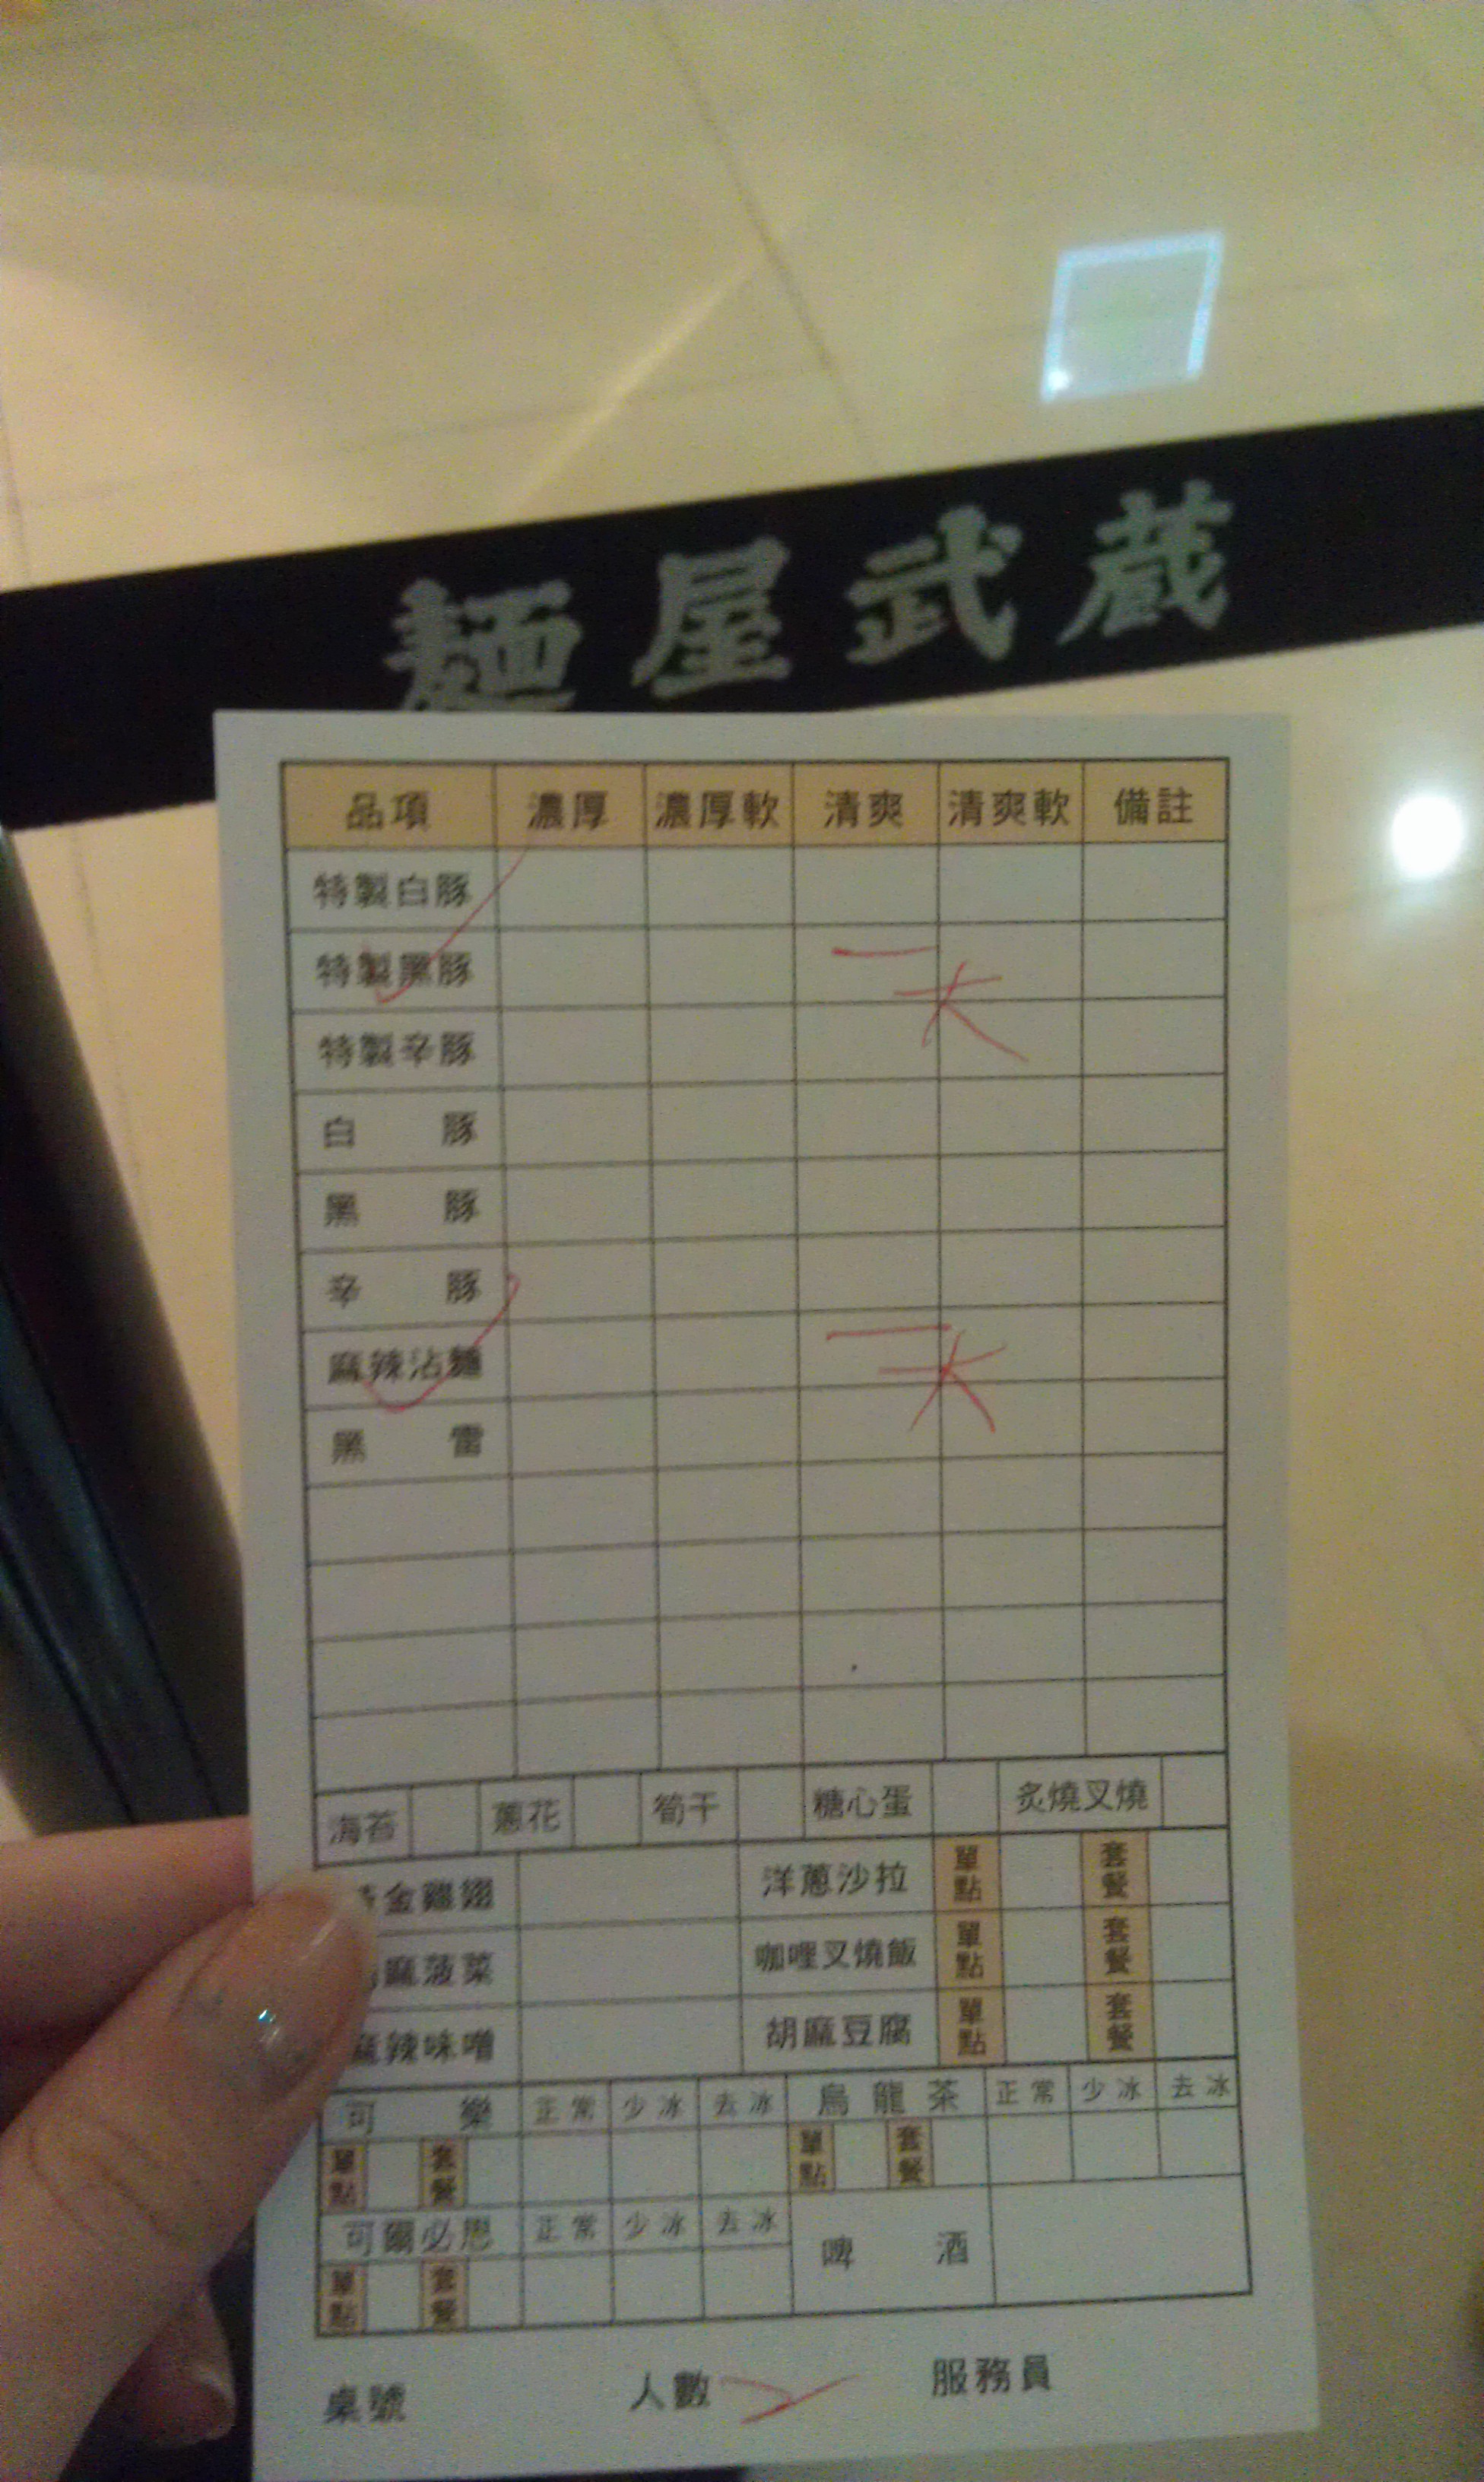 麺屋武蔵
品項 濃厚 濃厚軟 清爽 清爽軟 備註
特製白豚
特製黑豚 一大
特製辛豚
白豚
黑豚
辛豚
麻辣沾麵 一大
黑雷
海苔 蔥花 筍干 糖心蛋 炙燒叉燒
金雞翅 洋蔥沙拉 單點 套餐
麻菠菜 咖哩叉燒飯 單點 套餐
麻辣味噌 胡麻豆腐 單點 套餐
可樂 正常 少冰 去冰 烏龍茶 正常 少冰 去冰
單點 套餐 單點 套餐
可爾必思 正常 少冰 去冰 啤酒
單點 套餐
桌號 人數 2 服務員